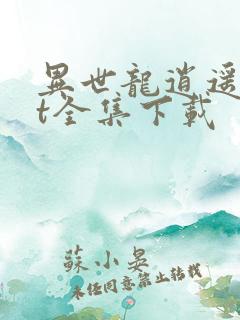 異世龍逍遥
t全集下載
蘇小晏
未任同意禁止转载